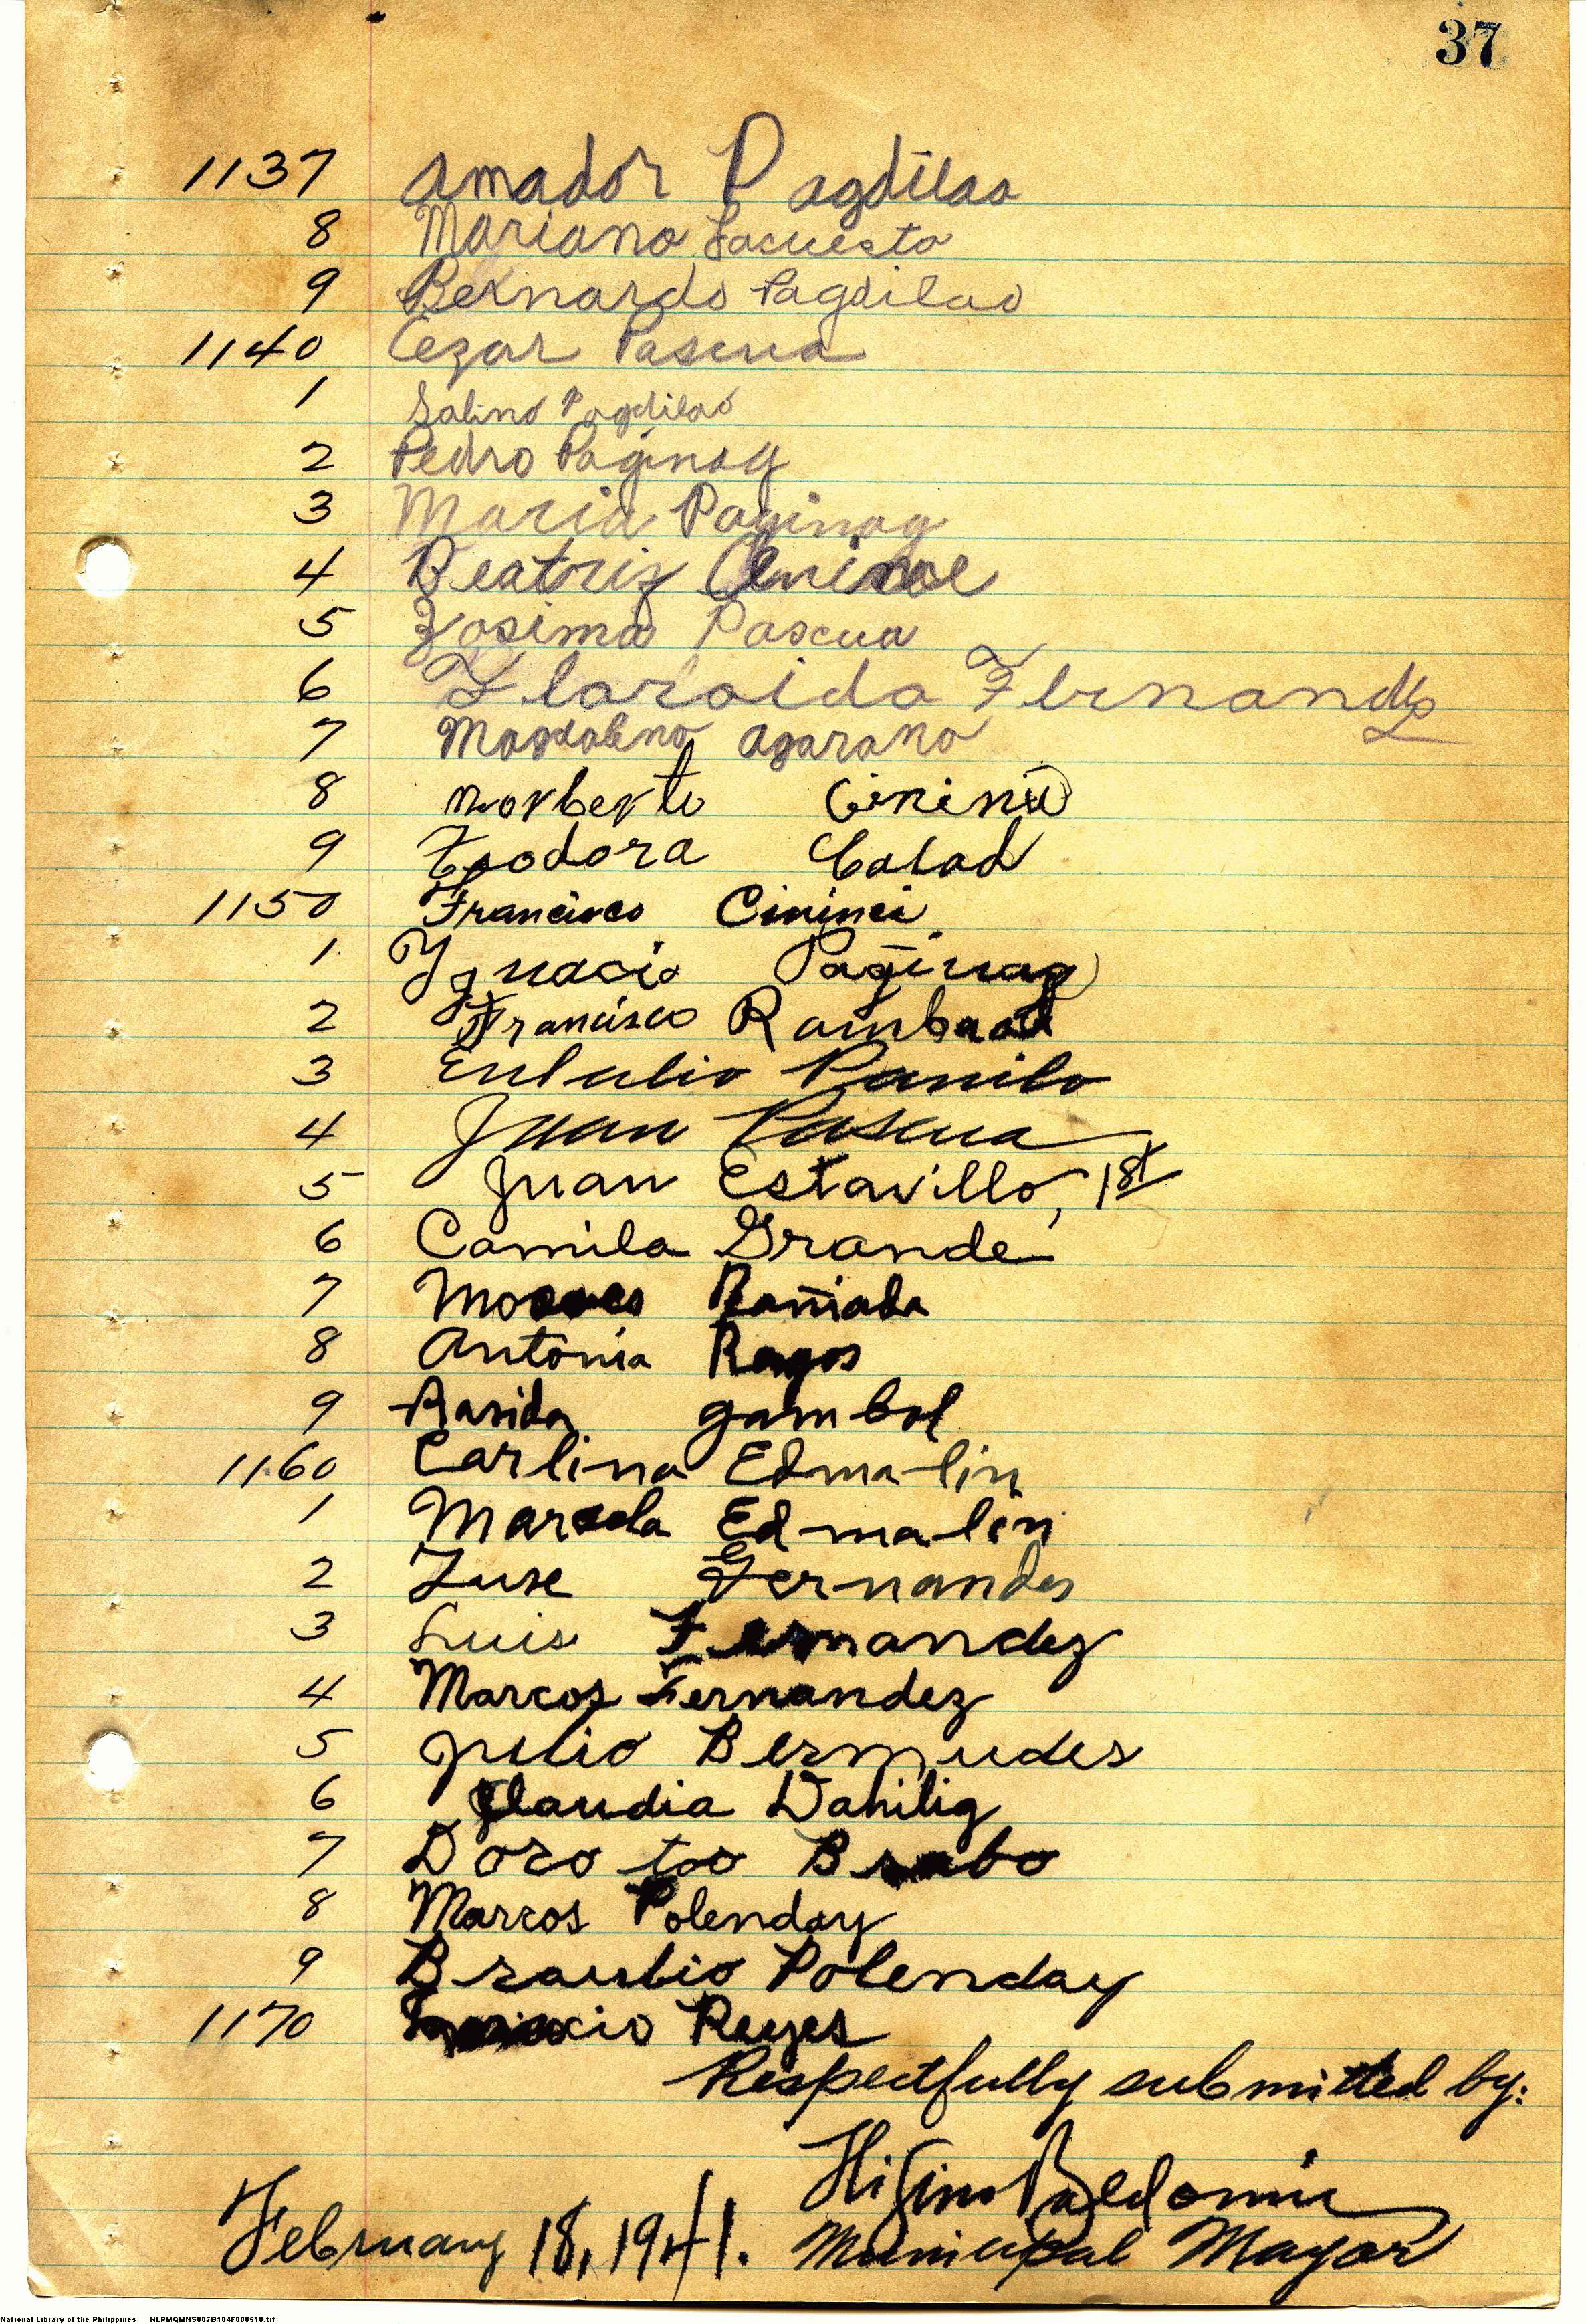 37
1137 Amador Pagdilao
8 Mariano Lacuesta
9 Bernardo Pagdilao
1140 Cezar Pascua
1 Sabino Pagdilao
2 Pedro Paginag
3 Maria Paginag
4 Beatriz
5 Zosima Pascua
6 Fernandez
7 Magdalena Agarano
8 Norberto
9 Teodora Calad
1150 Francisco Cininei
1 Ygnacio Paginag
2 Francisco
3 Eulalio Panilo
4 Juan Pascua
5 Juan Estavillo, 1st
6 Camila Grande
7 Rañada
8 Antonia Ragos
9 Gambol
1160 Carlina Edmalin
1 Marcela Edmalin
2 Luse Fernandes
3 Luis Fernandez
4 Marcos Fernandez
5 Julio Bermudes
6 Claudia Dahilig
7 Doroteo Brabo
8 Marcos Polenday
9 Braulio Polenday
1170 Reyes
Respectfully submitted by:
Higino
February 18, 1941. Municipal Mayor
National Library of the Philippines NLPMQMNS007B104F000610.tif